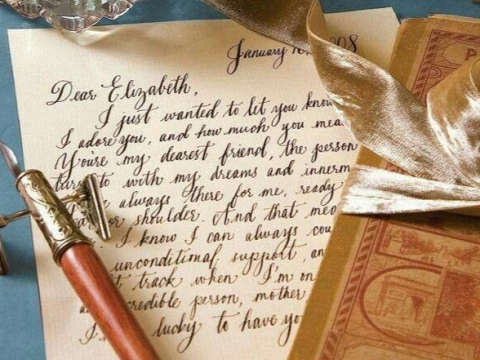 January
Dear Elizabeth,
I just wanted to let you know
I adore you, and how much you
You're my dearest friend, the person
to with my dreams and
always there for me, ready
or shoulder. And that
I know I can always
unconditional support,
track when I'm on
person, mother
lucky to have
P